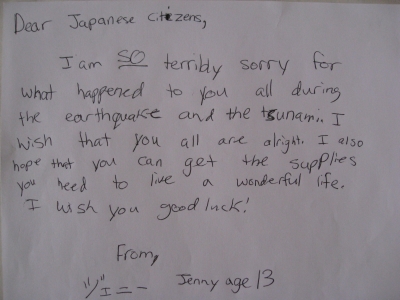 Dear Japanese Citizens,
I am SO terribly sorry for
what happened to you all during
the earthquake and the tsunami. I
wish that you all are alright. I also
hope that you can get the supplies
you need to live a wonderful life.
I wish you good luck!
From,
ジェニー Jenny age 13